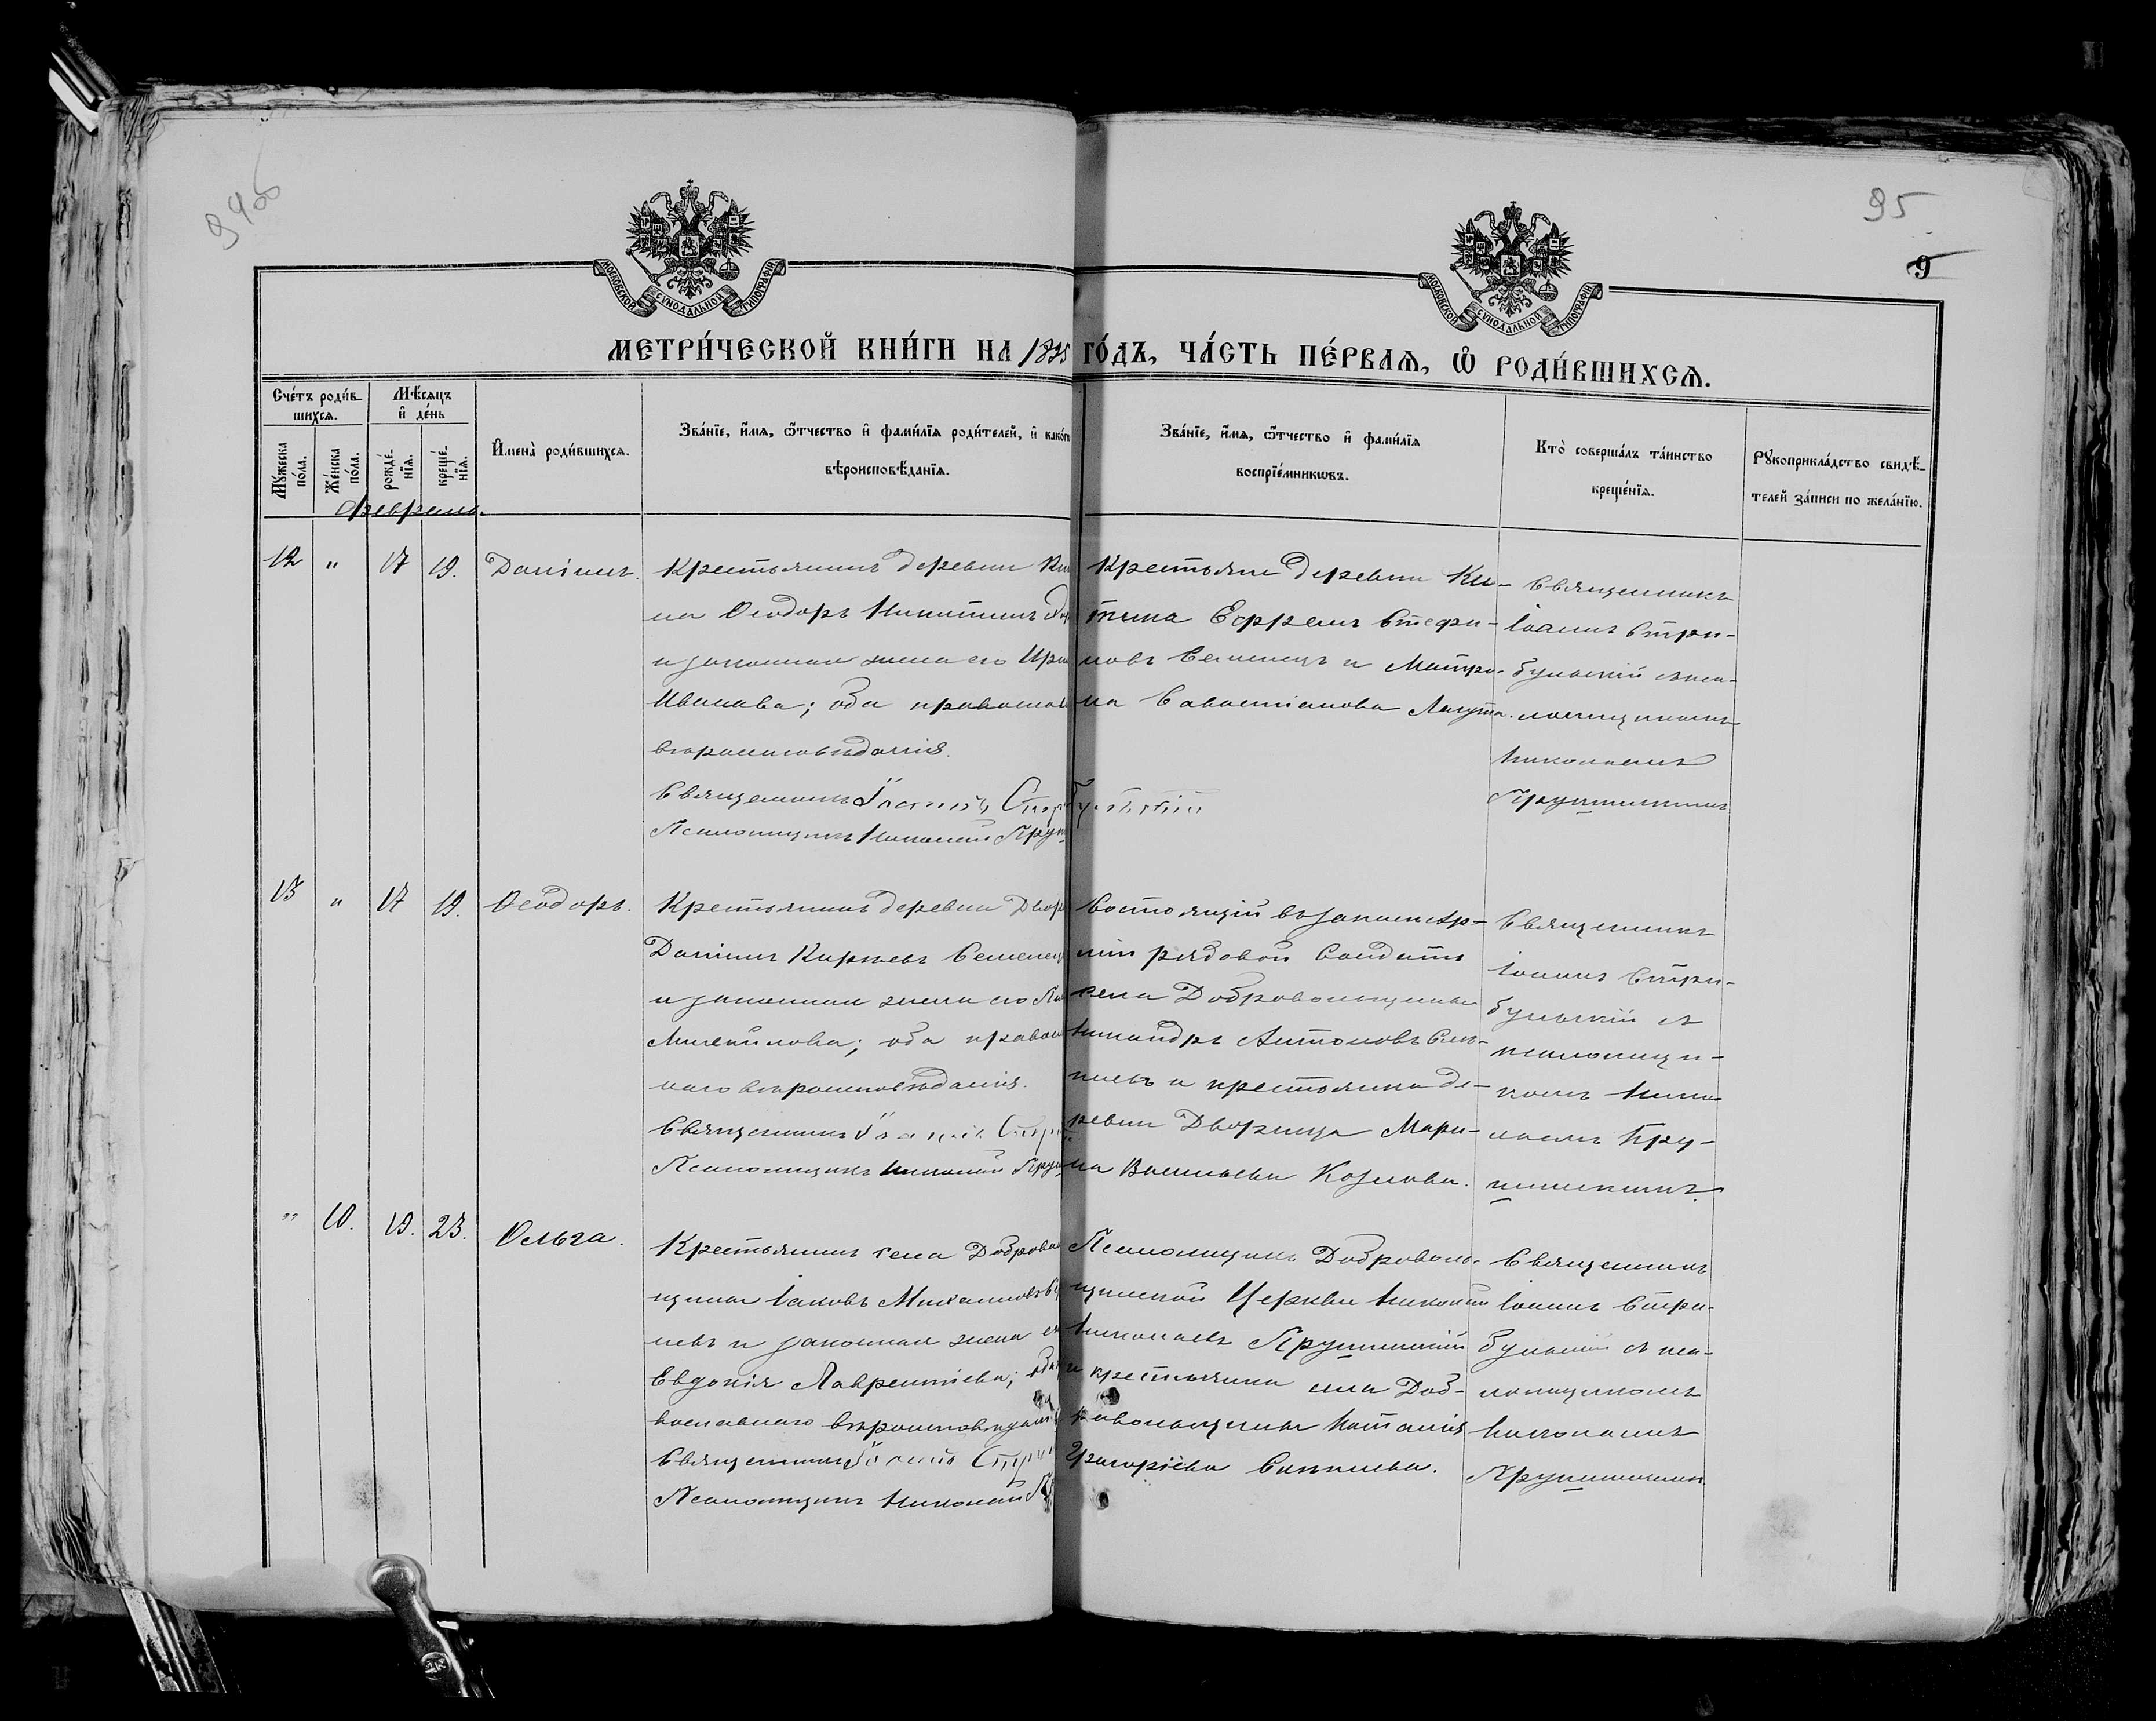 94об
95
9
МОСКОВСКОЙ СУНОДАЛЬНОЙ ТИПОГРАФІИ
МОСКОВСКОЙ СУНОДАЛЬНОЙ ТИПОГРАФІИ
МЕТРИ́ЧЕСКОЙ КНИ́ГИ НА 1895 ГО́ДЪ, ЧА́СТЬ ПЕ́РВАѦ, Ѡ҆ РОДИ́ВШИХСѦ.
Сче́тъ роди́в-
шихсѧ.
Мѣ́сѧцъ
и҆ де́нь
Мꙋ́жеска
по́ла.
Же́нска
по́ла.
рожде́-
нїѧ.
креще́-
нїѧ.
И҆мена̀ роди́вшихсѧ.
Зва́нїе, и҆́мѧ, ѻ҆́тчество и҆ фами́лїѧ роди́телей, и҆ како́гѡ
вѣроисповѣ́данїѧ.
Зва́нїе, и҆́мѧ, ѻ҆́тчество и҆ фами́лїѧ
воспрїе́мникѡвъ.
Кто̀ соверша́лъ та́инство
креще́нїѧ.
Рꙋкоприкла́дство свидѣ́-
телей за́писи по жела́нїю.
Февраль.
12 " 17 19. Даніилъ.
Крестьянинъ деревни Ки
на Ѳеодоръ Никитинъ
и законная жена его Ири
Иванова; оба православ
вѣроисповѣданія.
Священникъ Іоаннъ Стри
Псаломщикъ Николай Круп
Крестьяне деревни Ки-
тина Ефремъ Стефа-
новъ Семенецъ и Матро-
на Савастіанова Лагута.
бульскій
Священникъ
Іоаннъ Стри-
бульскій съ пса-
ломщикомъ
Николаемъ
13 " 17 19. Ѳеодоръ.
Крестьянинъ деревни Двор
Даніилъ Карпевъ Семенец
и законная жена его
оба правосла
наго вѣроисповѣданія.
Священникъ Іоаннъ Стри
Псаломщикъ Николай Круп
Состоящій въ запасѣ Ар-
міи рядовой Солдатъ
села Добровольщины
Никандръ Антоновъ
и крестьянка де-
ревни Дворища Мари-
на Васильева Козлова.
Священникъ
Іоаннъ Стри-
бульскій съ
псаломщи-
комъ Нико-
лаемъ Кру-
" 10. 19. 23. Ольга.
Крестьянинъ села Доброволь
щины Іаковъ Михаиловъ
невъ и законная жена ег
Евдокія Лаврентіева; оба
вославнаго вѣроисповѣдані
Священникъ Іоаннъ Стри
Псаломщикъ Николай
Псаломщикъ Доброволь-
щинской Церкви Николай
Николаевъ
и крестьянка села Доб-
ровольщины Наталія
Григоріева
Священникъ
Іоаннъ Стри-
бульскій съ пса-
ломщикомъ
Николаемъ